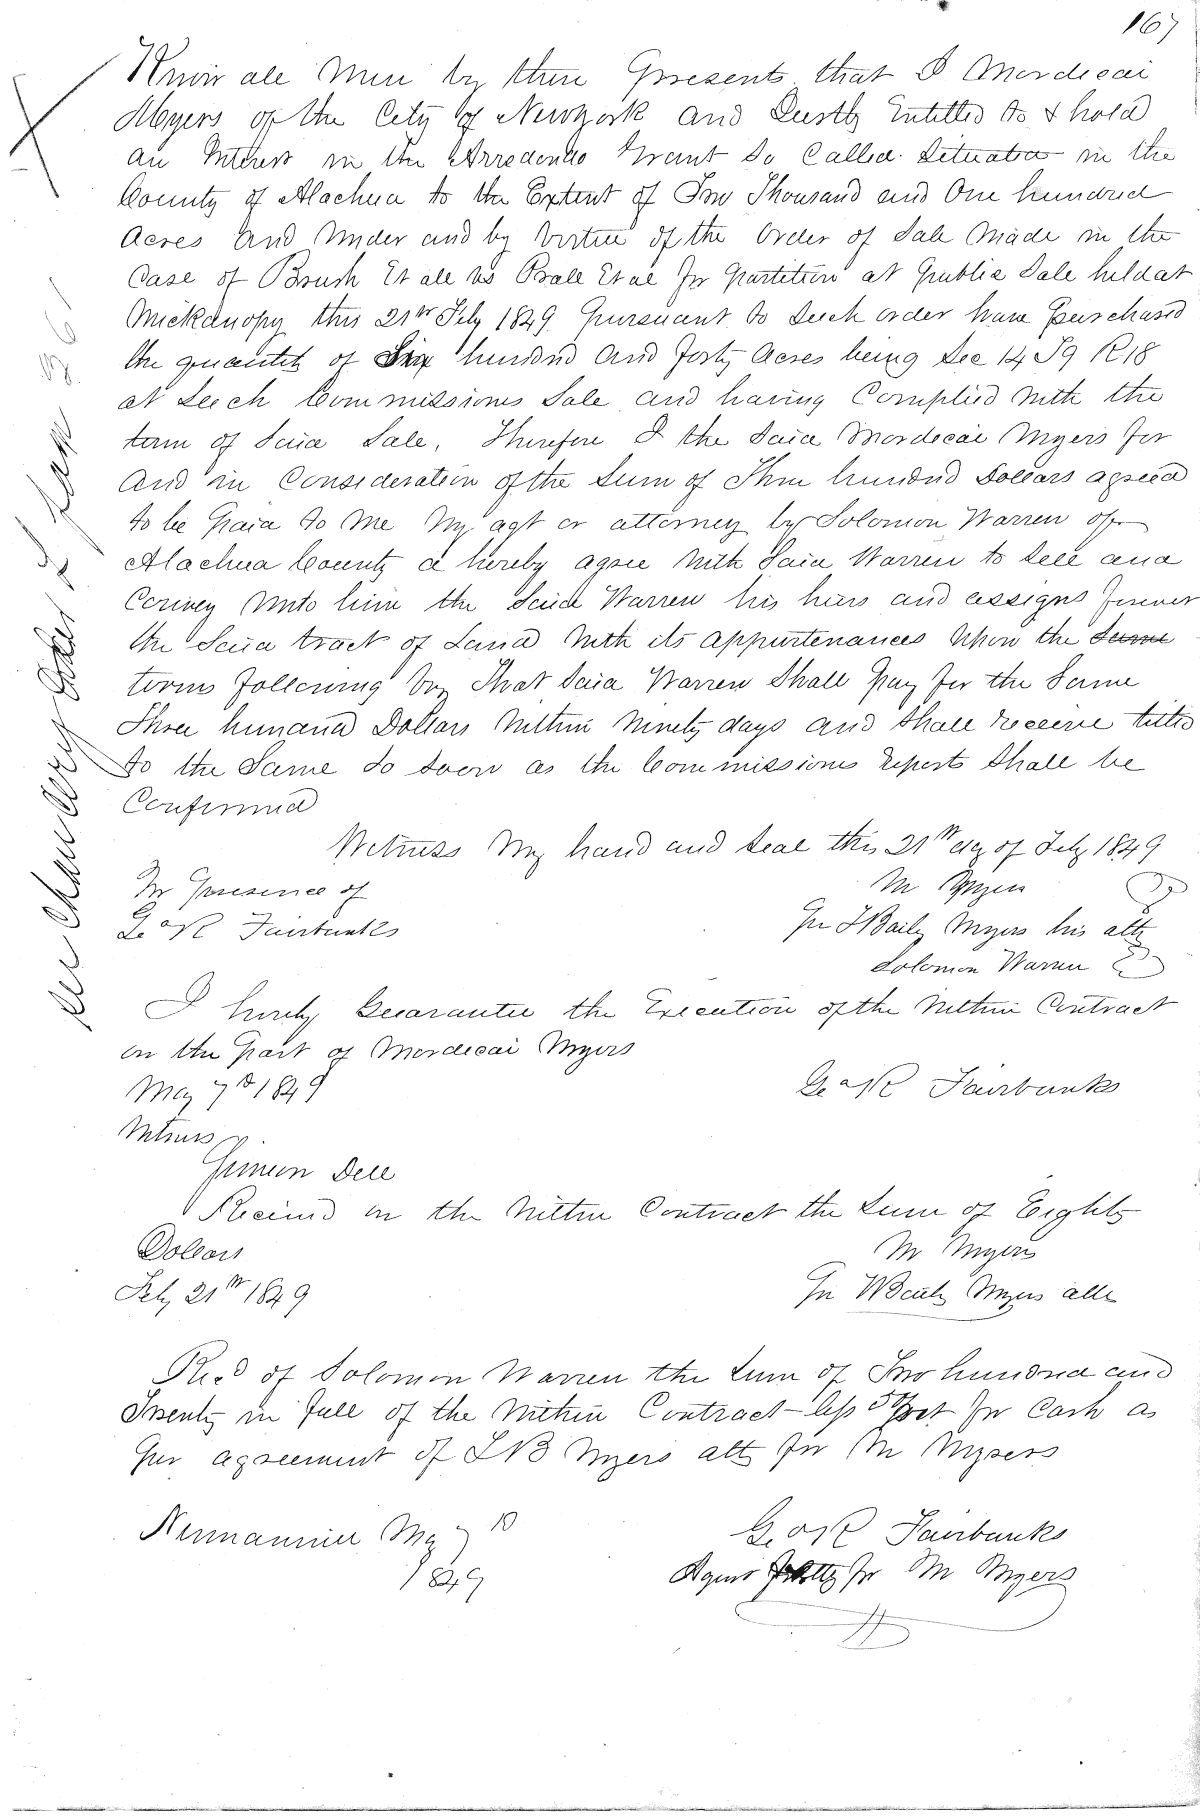 167
Know all Men by these Presents that I Mordecai
Myers of the City of Newyork and Justly Entitled to & hold
an Interest in the Arredondo Grant So Called Situated in the
County of Alachua to the Extent of Two Thousand and One hundred
Acres and Under and by Virtue of the Order of Sale Made in the
Case of Brush Et all vs Et al for partition at public Sale held at
Mickanopy this 21st Feby 1849 pursuant to Such order have purchased
the quantity of Six hundred and forty Acres being Sec 14 T9 R18
at Such Commissions Sale and having Complied with the
term of Said Sale, Therefore I the Said Mordecai Myers for
And in Consideration of the Sum of Three hundred Dollars agreed
to be paid to me my agt or attorney by Solomon Warren of
Alachua County d hereby agree with Said Warren to Sell and
Convey Unto him the Said Warren his heirs and assigns forever
the Said tract of Land with its appurtenances Upon the Same
terms following Viz That Said Warren Shall pay for the Same
Three hundred Dollars within Ninety days and Shall receive title
to the Same So Soon as the Commissions reports Shall be
Confirmed
Witness my hand and Seal this 21st day of Feby 1849
In presence of
M Myers
Geo R Fairbanks
Per T Baily Myers his atty
Solomon Warren
I hereby Guarantee the Execution of the within Contract
on the part of Mordecai Myers
May 7th 1849
Geo R Fairbanks
Witness
Simeon Dell
Received on the within Contract the Sum of Eighty
Dollars
M Myers
Feby 21st 1849
Per Baily Myers atty
Recd of Solomon Warren the Sum of Two hundred and
Twenty in full of the within Contract less 5 pct for Cash as
per agreement of T B Myers atty for M Myers
Newnansville May 7th
1849
Geo R Fairbanks
Agent for M Myers
See Chancery Order I page 361